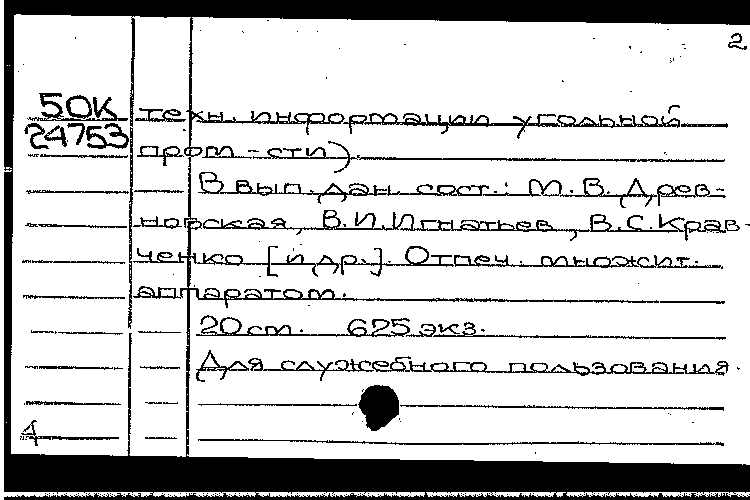 2
50К
24753
техн. информации угольной
пром-сти).
В вып. дан. сост.: М.В. Древ-
новская, В.И. Игнатьев, В.С. Крав-
ченко [и др.]. Отпеч. множит.
аппаратом.
20 см. 625 экз.
Для служебного пользования.